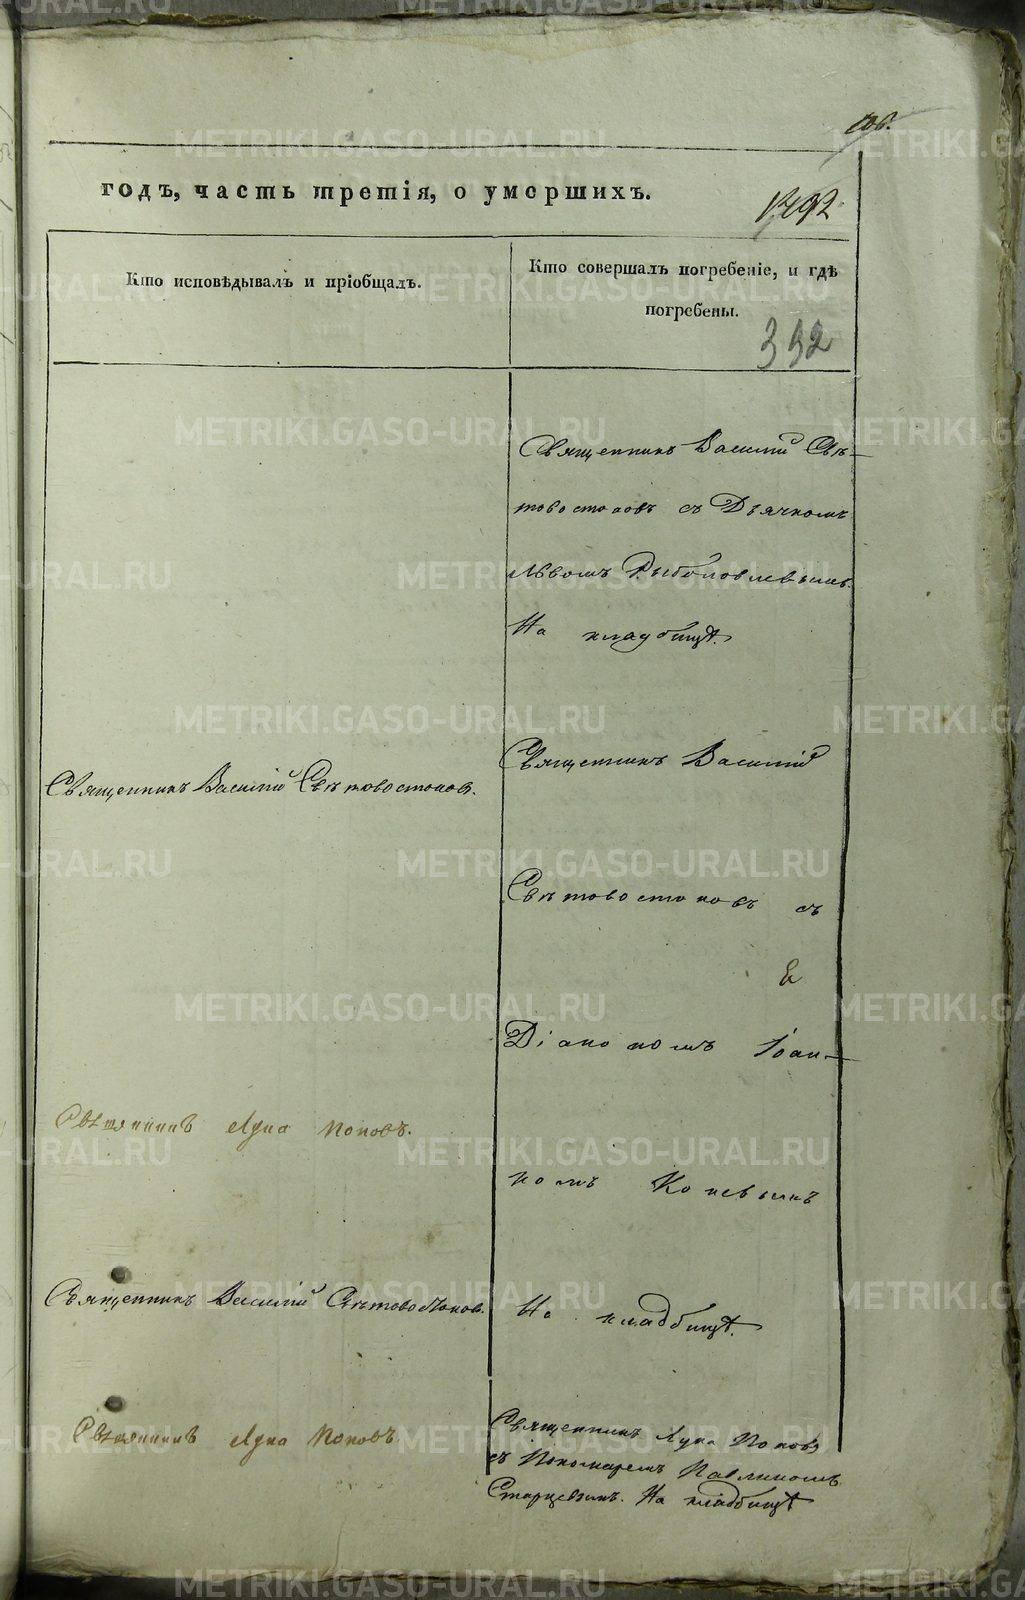 106.
годъ, часть третія, о умершихъ.
1292
Кто исповѣдывалъ и пріобщалъ.
Кто совершалъ погребеніе, и гдѣ
погребены.
392
Священникъ Василій Свѣ-
товостоковъ съ Дьячкомъ
Львомъ Рыболовлевымъ.
На кладбищѣ.
Священникъ Василій Свѣтовостоковъ.
Священникъ Василій
Свѣтовостоковъ съ
Діакономъ Іоан-
номъ Коневымъ
На кладбищѣ.
Священникъ Лука Поповъ.
Священникъ Василій Свѣтовостоковъ.
Священникъ Лука Поповъ
Священникъ Лука Поповъ
съ Пономаремъ Павлиномъ
Старцевымъ. На кладбищѣ
METRIKI.GASO-URAL.RU